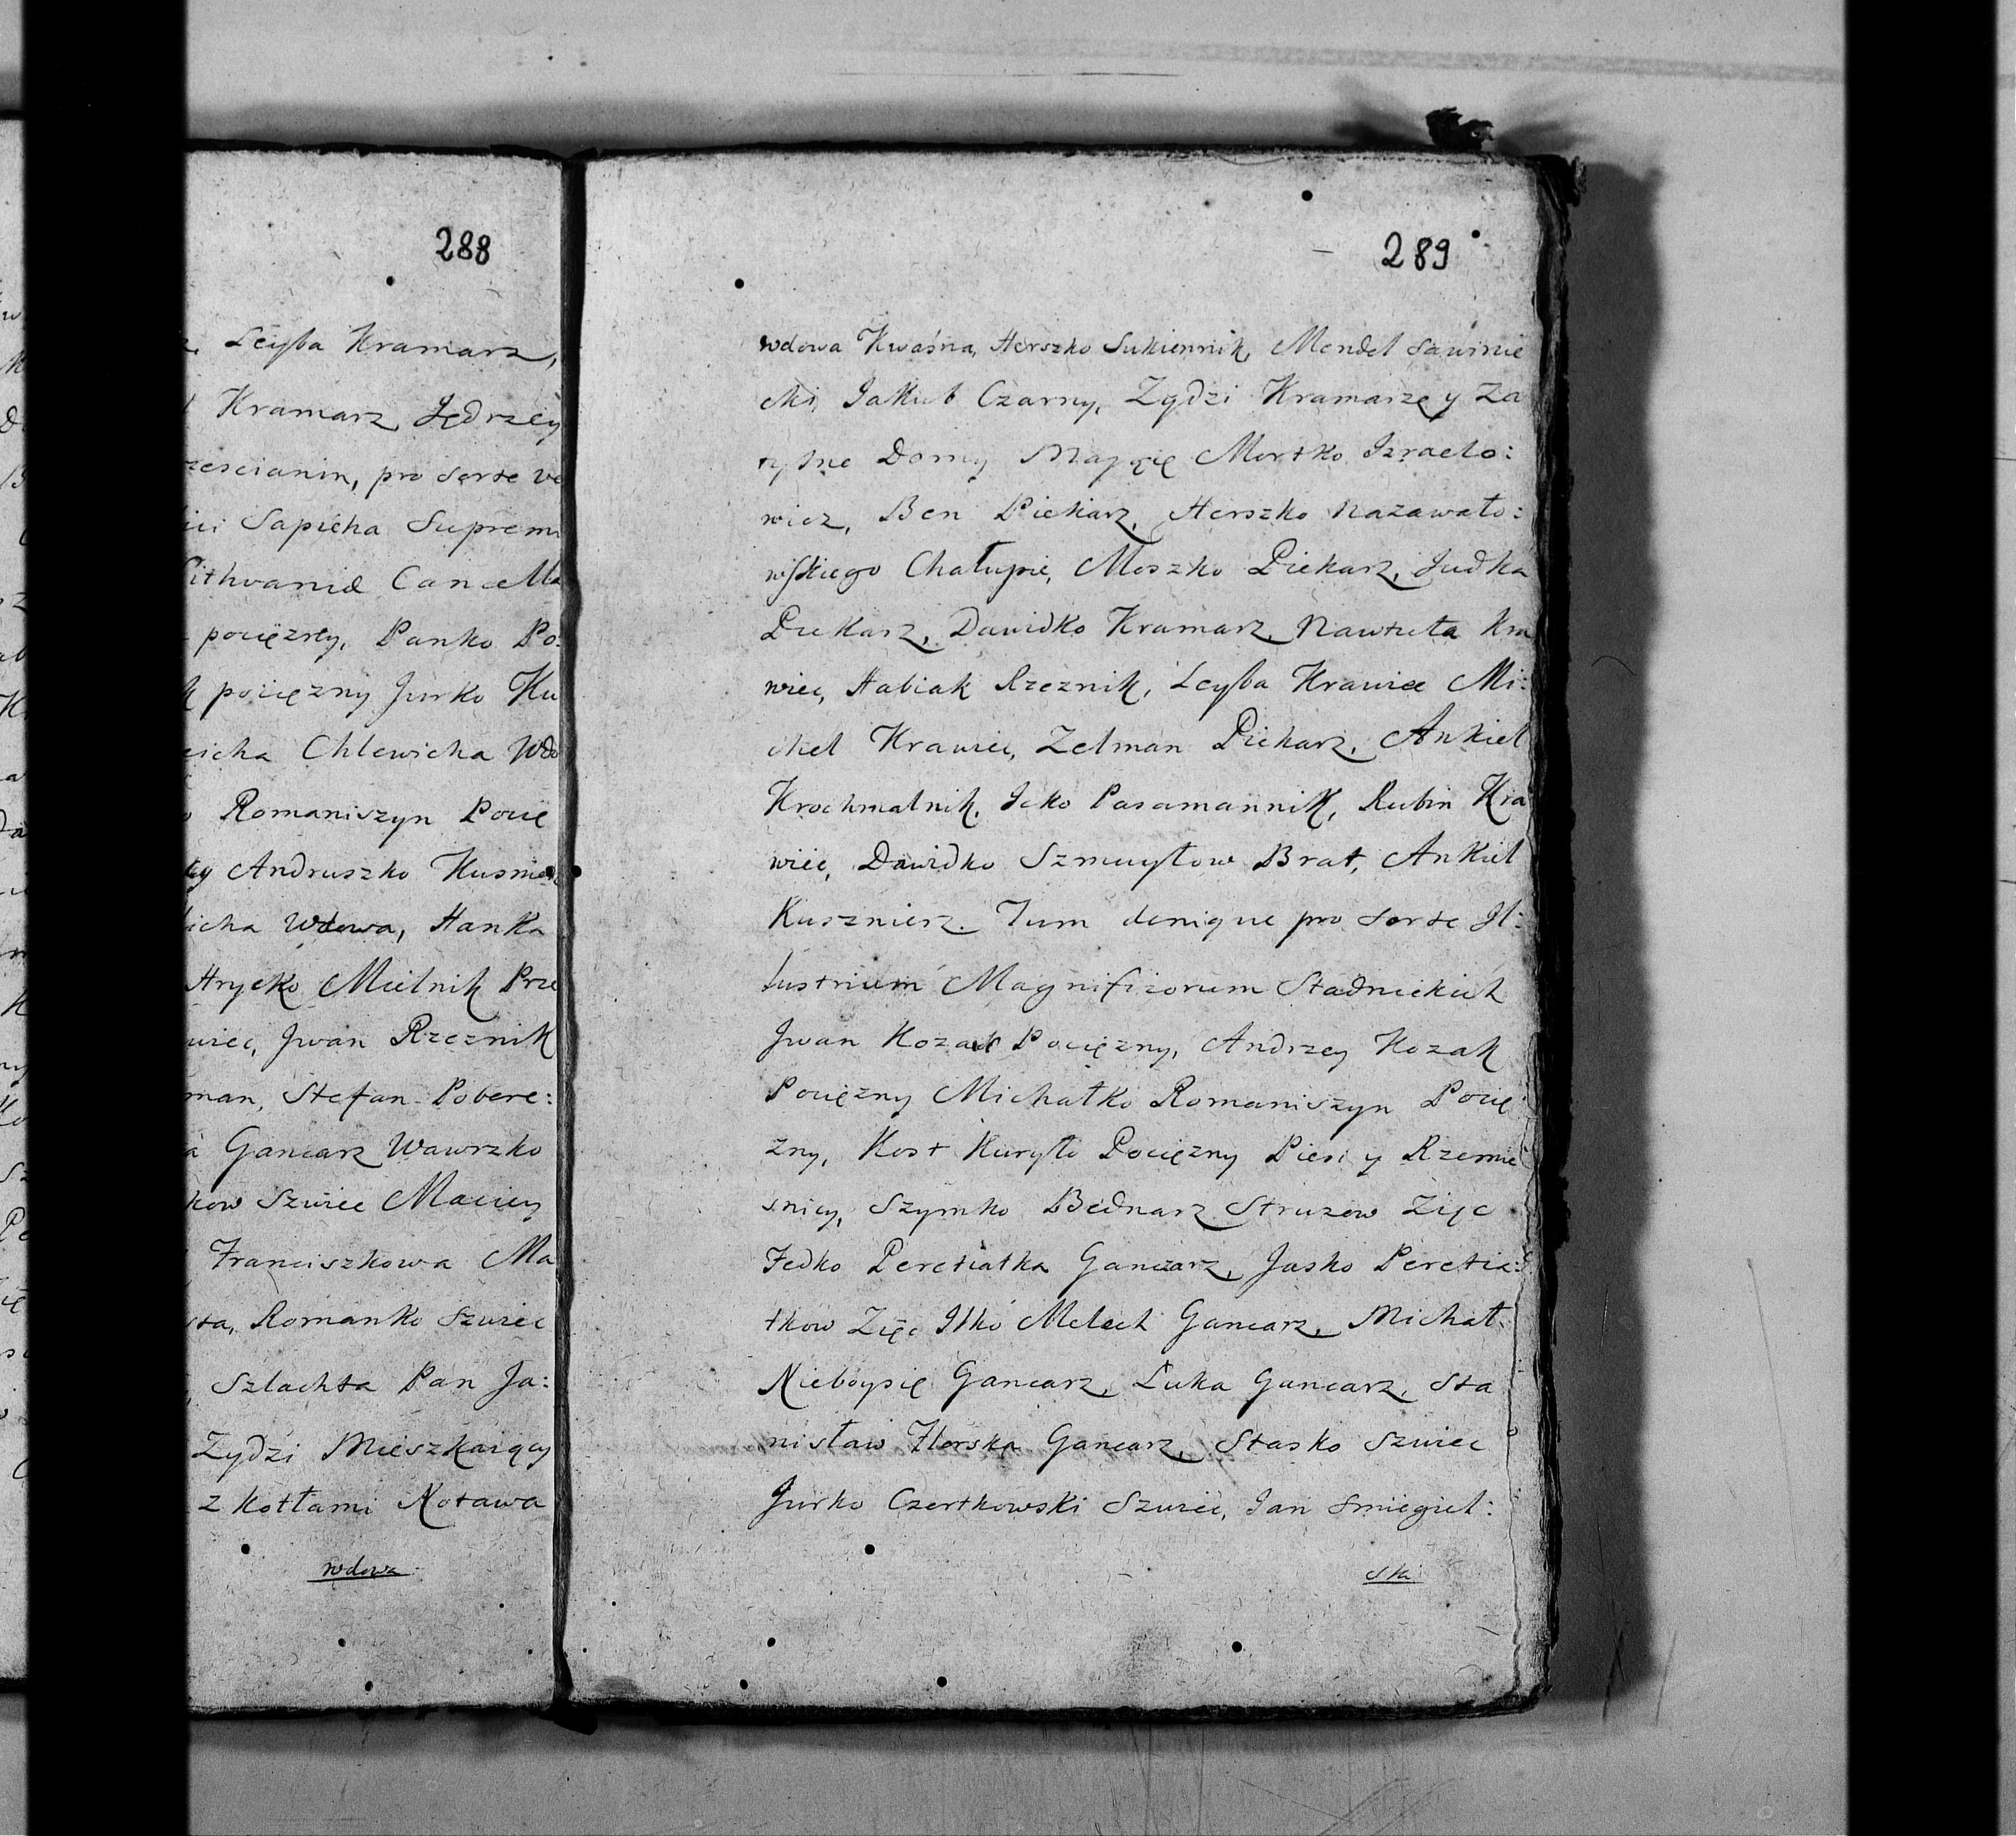 288
Leyba Kramarz,
Kramarz, Jędrzey
rescianin, pro sorte ve
Sapieha Supremi
Lithvaniæ Cancella
pociężny, Panko Po:
k pociężny Jurko Ku
eicha Chlewicha Wdo
Romaniszyn Pocię
Andruszko Kusmi
icha Wdowa, Hanka
Hrycko Mielnik Prze
wiec, Jwan Rzeznik
man, Stefan Pobere:
a Gancarz Wawrzko
kow Szwiec Maciey
Franciszkowa Ma
sta, Romanko Szwiec
Szlachta Pan Ja:
Zydzi Mieszkaiący
z Kotłami Notawa
wdowa
289
wdowa Kwaśna, Herszko Sukiennik, Mendel Sawinie
cki, Jakub Czarny, Zydzi Kramarze y Za
tylne Domy Maiące Mortko Izraelo:
wicz, Ben Piekarz, Herszko Nazawało:
wskiego Chałupie, Moszko Piekarz, Judka
Piekarz, Dawidko Kramarz, Nawtuła Kra
wiec, Habiak Rzeznik, Leyba Krawiec Mi:
chel Krawiec, Zelman Piekarz, Ankiel
Krochmalnik, Icko Pasamannik, Rubin Kra
wiec, Dawidko Szmuyłow Brat, Ankiel
Kusznierz. Tum denique pro sorte Jl:
lustrium Magnificorum Stadnickich
Jwan Kozak Pociężny, Andrzey Kozak
Pociężny Michałko Romaniszyn Pocię
zny, Kost Kuryło Pociężny Piesi y Rzemie
snicy, Szymko Bednarz Struzow Zięc
Fedko Peretiatka Gancarz, Jasko Peretia:
tkow Zięc Ilko Melech Gancarz, Michał
Nieboysię Gancarz, Łuka Gancarz, Sta
nisław Florska Gancarz, Stasko Szwiec
Jurko Czertkowski Szwiec, Jan Smiegiel:
ski